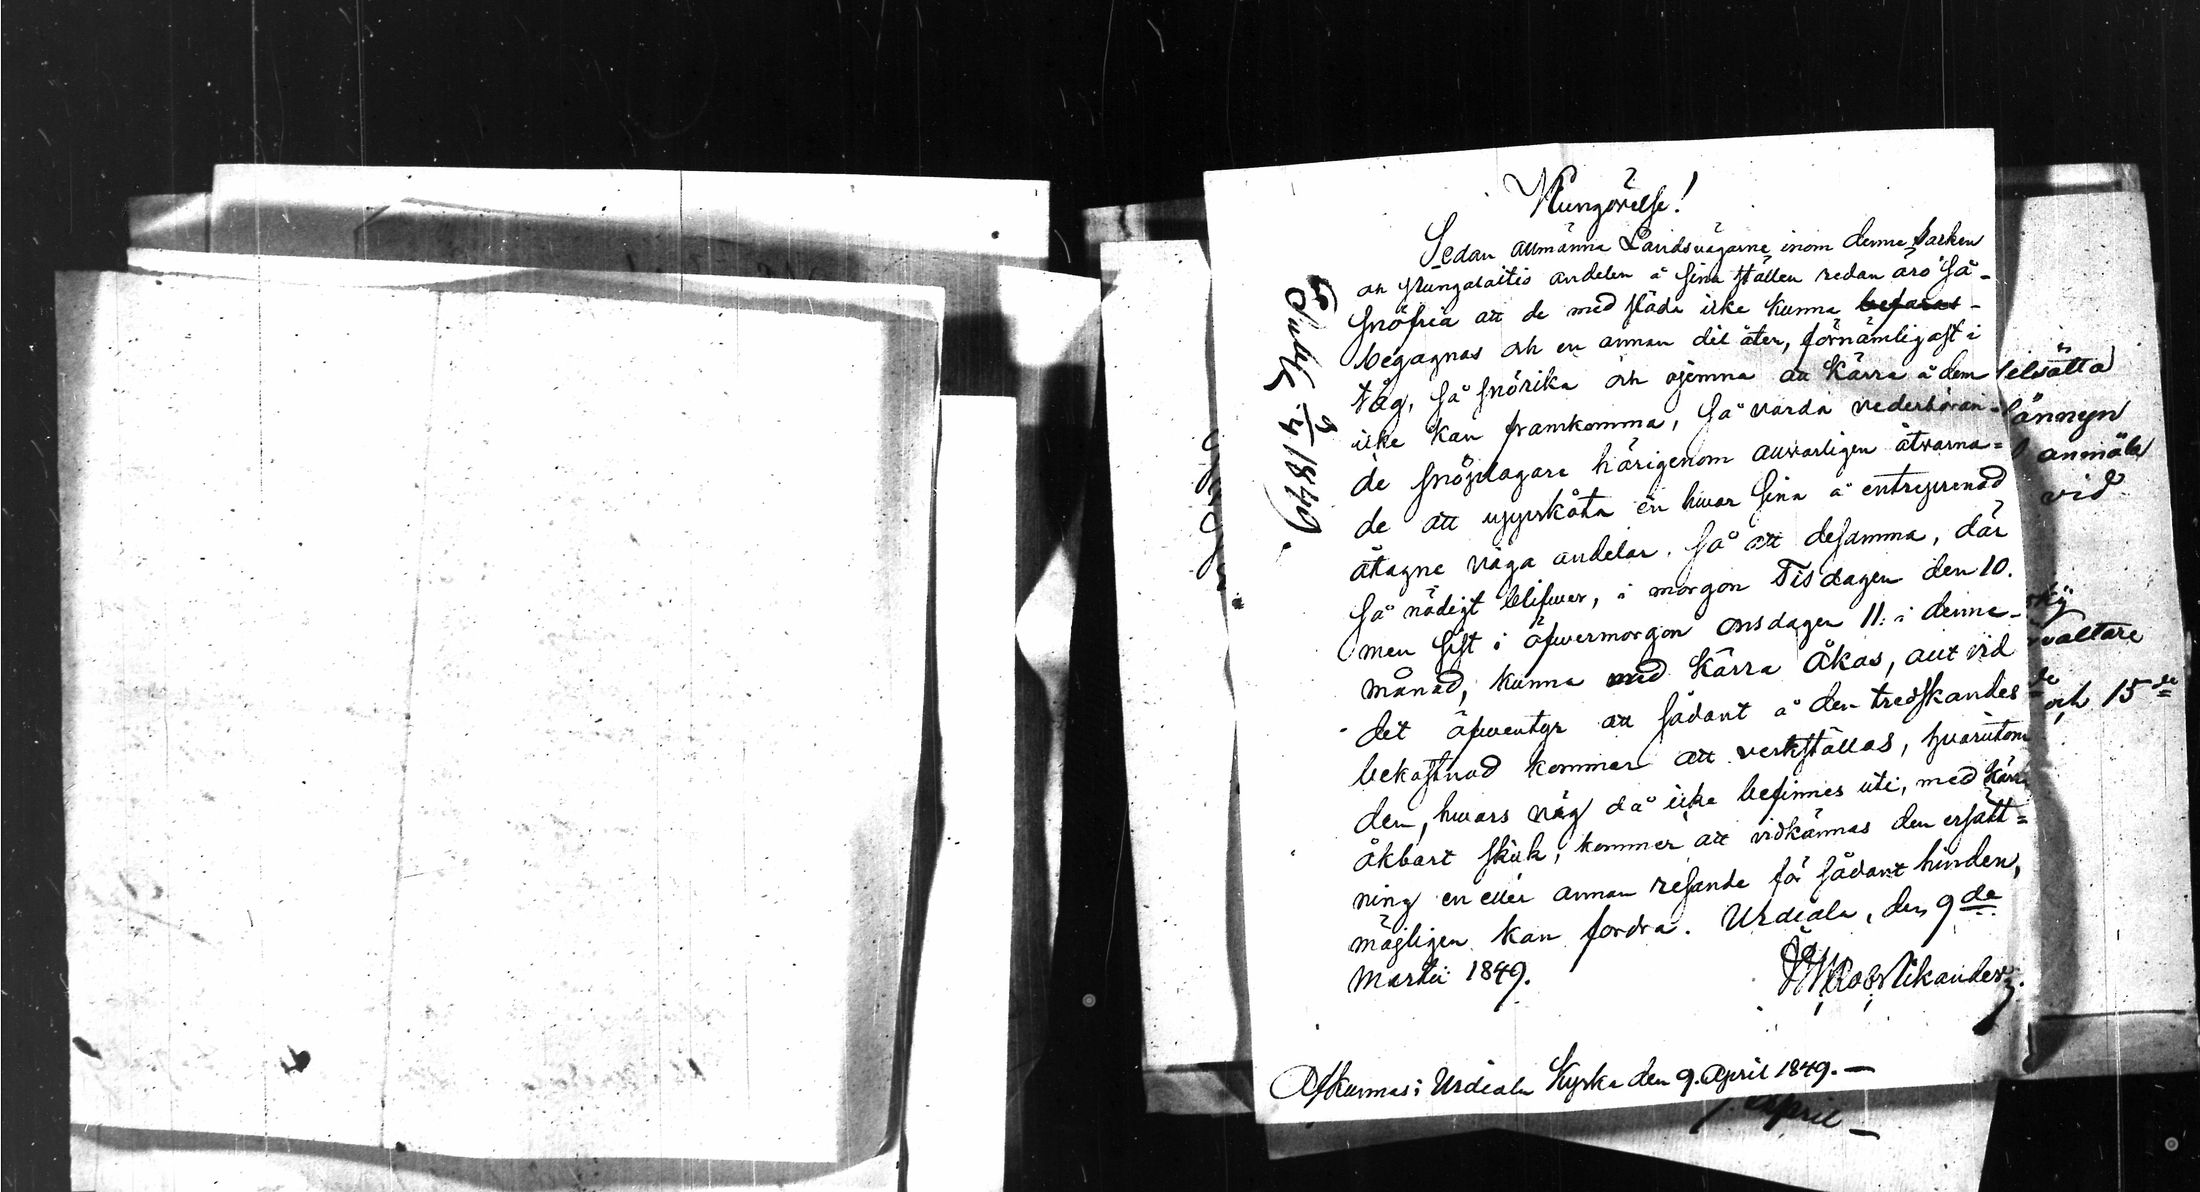 Kungörelse!
Sedan allmänna Landsvägarne inom denne Socken
och Kungalaitis andelen å sina ställen redan äro så
snöfria att de med släda icke kunna befaras
begagnas och en annan del åter, förnämligast i
tåg, så snörika och ojemna att Kärra å dem
icke kan framkomma, så varda vederböran-
de snöplogare härigenom allvarligen åtvarna=
de att uppskåta en hvar sina å entreprenad
åtagne väga andelar. så att desamma, där
så nödigt blifver, i morgon Tisdagen den 10.
men sist i öfvermorgon onsdagen 11. i denne
månad, kunna med Kärra åkas, allt vid
det äfventyr att sådant å den tredskandes
bekostnad kommer att verkställas, hvarutom
den, hvars väg då icke befinnes uti, med Kärra
åkbart skick, kommer att vidkännas den ersätt=
ning en eller annan resande för sådant hinder,
möjligen kan fordra. Urdiala, den 9de
Martii 1849.
Nikander.
Afkunnas i Urdiala Kyrka den 9. April 1849.—
Publ. 9/4 1849.
anmäla
vid
och 15de
April —